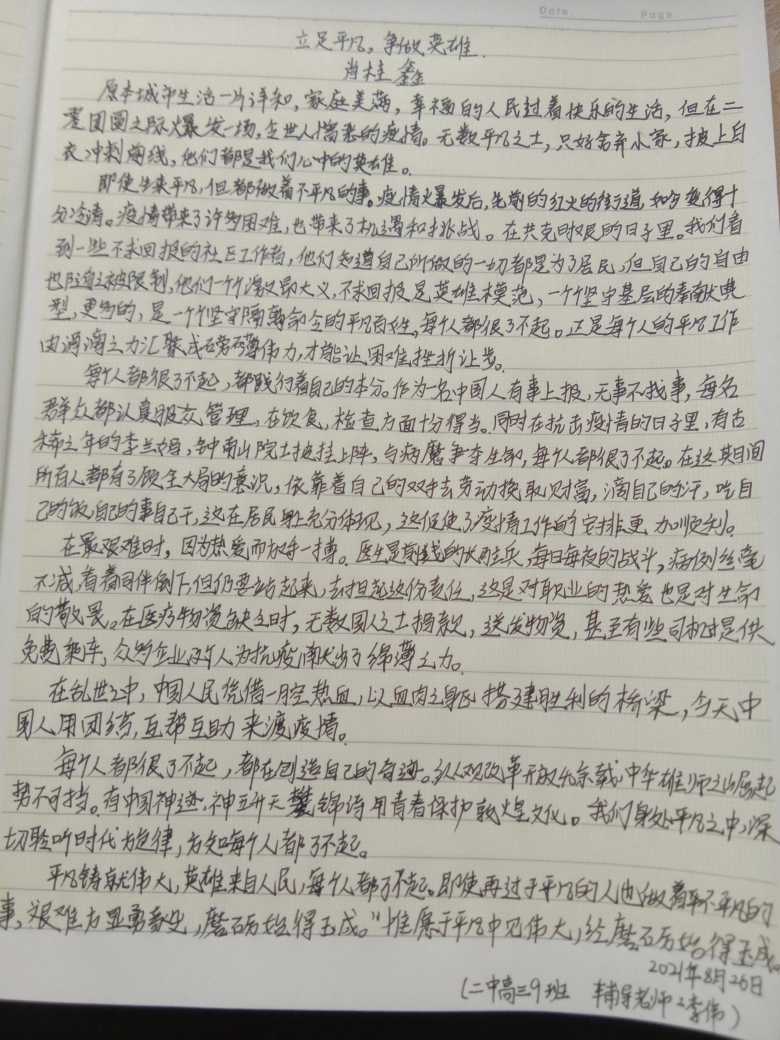 Date Page
立足平凡，争做英雄
肖桂鑫
原本城市生活一片详和，家庭美满，幸福的人民过着快乐的生活，但在一
团圆之际爆发一场，令世人惴惴的疫情。无数平凡之士，只好舍弃小家，披上白
衣冲刺前线，他们都是我们心中的英雄。
即使生来平凡，但都做着不平凡的事。疫情爆发后，先前的红火的街道，如今变得十
分冷清。疫情带来了许多困难，也带来了机遇和挑战。在共克时艰的日子里。我们看
到一些不求回报的社区工作者，他们知道自己所做的一切都是为了居民，但自己的自由
也随之被限制，他们一个个深明大义，不求回报是英雄模范，一个个坚守基层的奉献典
型，更多的，是一个个坚守隔离命令的平凡百姓，每个人都很了不起。正是每个人的平凡工作
由涓滴之力汇聚成磅礴伟力，才能让困难挫折让步。
每个人都很了不起，都践行着自己的本分。作为一名中国人有事上报，无事不找事，每名
群众都认真服从管理，在饮食，检查方面十分得当。同时在抗击疫情的日子里，有古
稀之年的李兰娟，钟南山院士披挂上阵，与病魔争夺生命，每个人都很了不起。在这期间
所有人都有了顾全大局的意识，依靠着自己的双手去劳动换取财富，滴自己的汗，吃自
己的饭自己的事自己干，这在居民身上充分体现，这促使了疫情工作的安排更加顺利。
在最艰难时，因为热爱而放手一搏。医生是前线的大头兵，每日每夜的战斗，病例丝毫
不减，看着同伴倒下，但仍要站起来，去担起这份责任，这是对职业的热爱也是对生命
的敬畏。在医疗物资缺乏时，无数国人之士捐款，送发物资，甚至有些司机提供
免费乘车，众多企业及个人为抗疫献出了绵薄之力。
在乱世之中，中国人民凭借一腔热血，以血肉之身躯搭建胜利的桥梁，今天中
国人用团结，互帮互助来渡疫情。
每个人都很了不起，都在创造自己的奇迹。纵观改革开放几余载，中华雄师之山崛起
势不可挡。有中国神迹，神立升天樊锦诗用青春保护敦煌文化。我们身处平凡之中，深
切聆听时代旋律，方知每个人都了不起。
平凡铸就伟大，英雄来自人民，每个人都了不起。即使再过于平凡的人也做着不平凡的
事，艰难方显勇毅，磨砺始得玉成。"惟愿于平凡中见伟大，经磨砺始得玉成。
2021年8月26日
（二中高三9班 辅导老师：李伟）